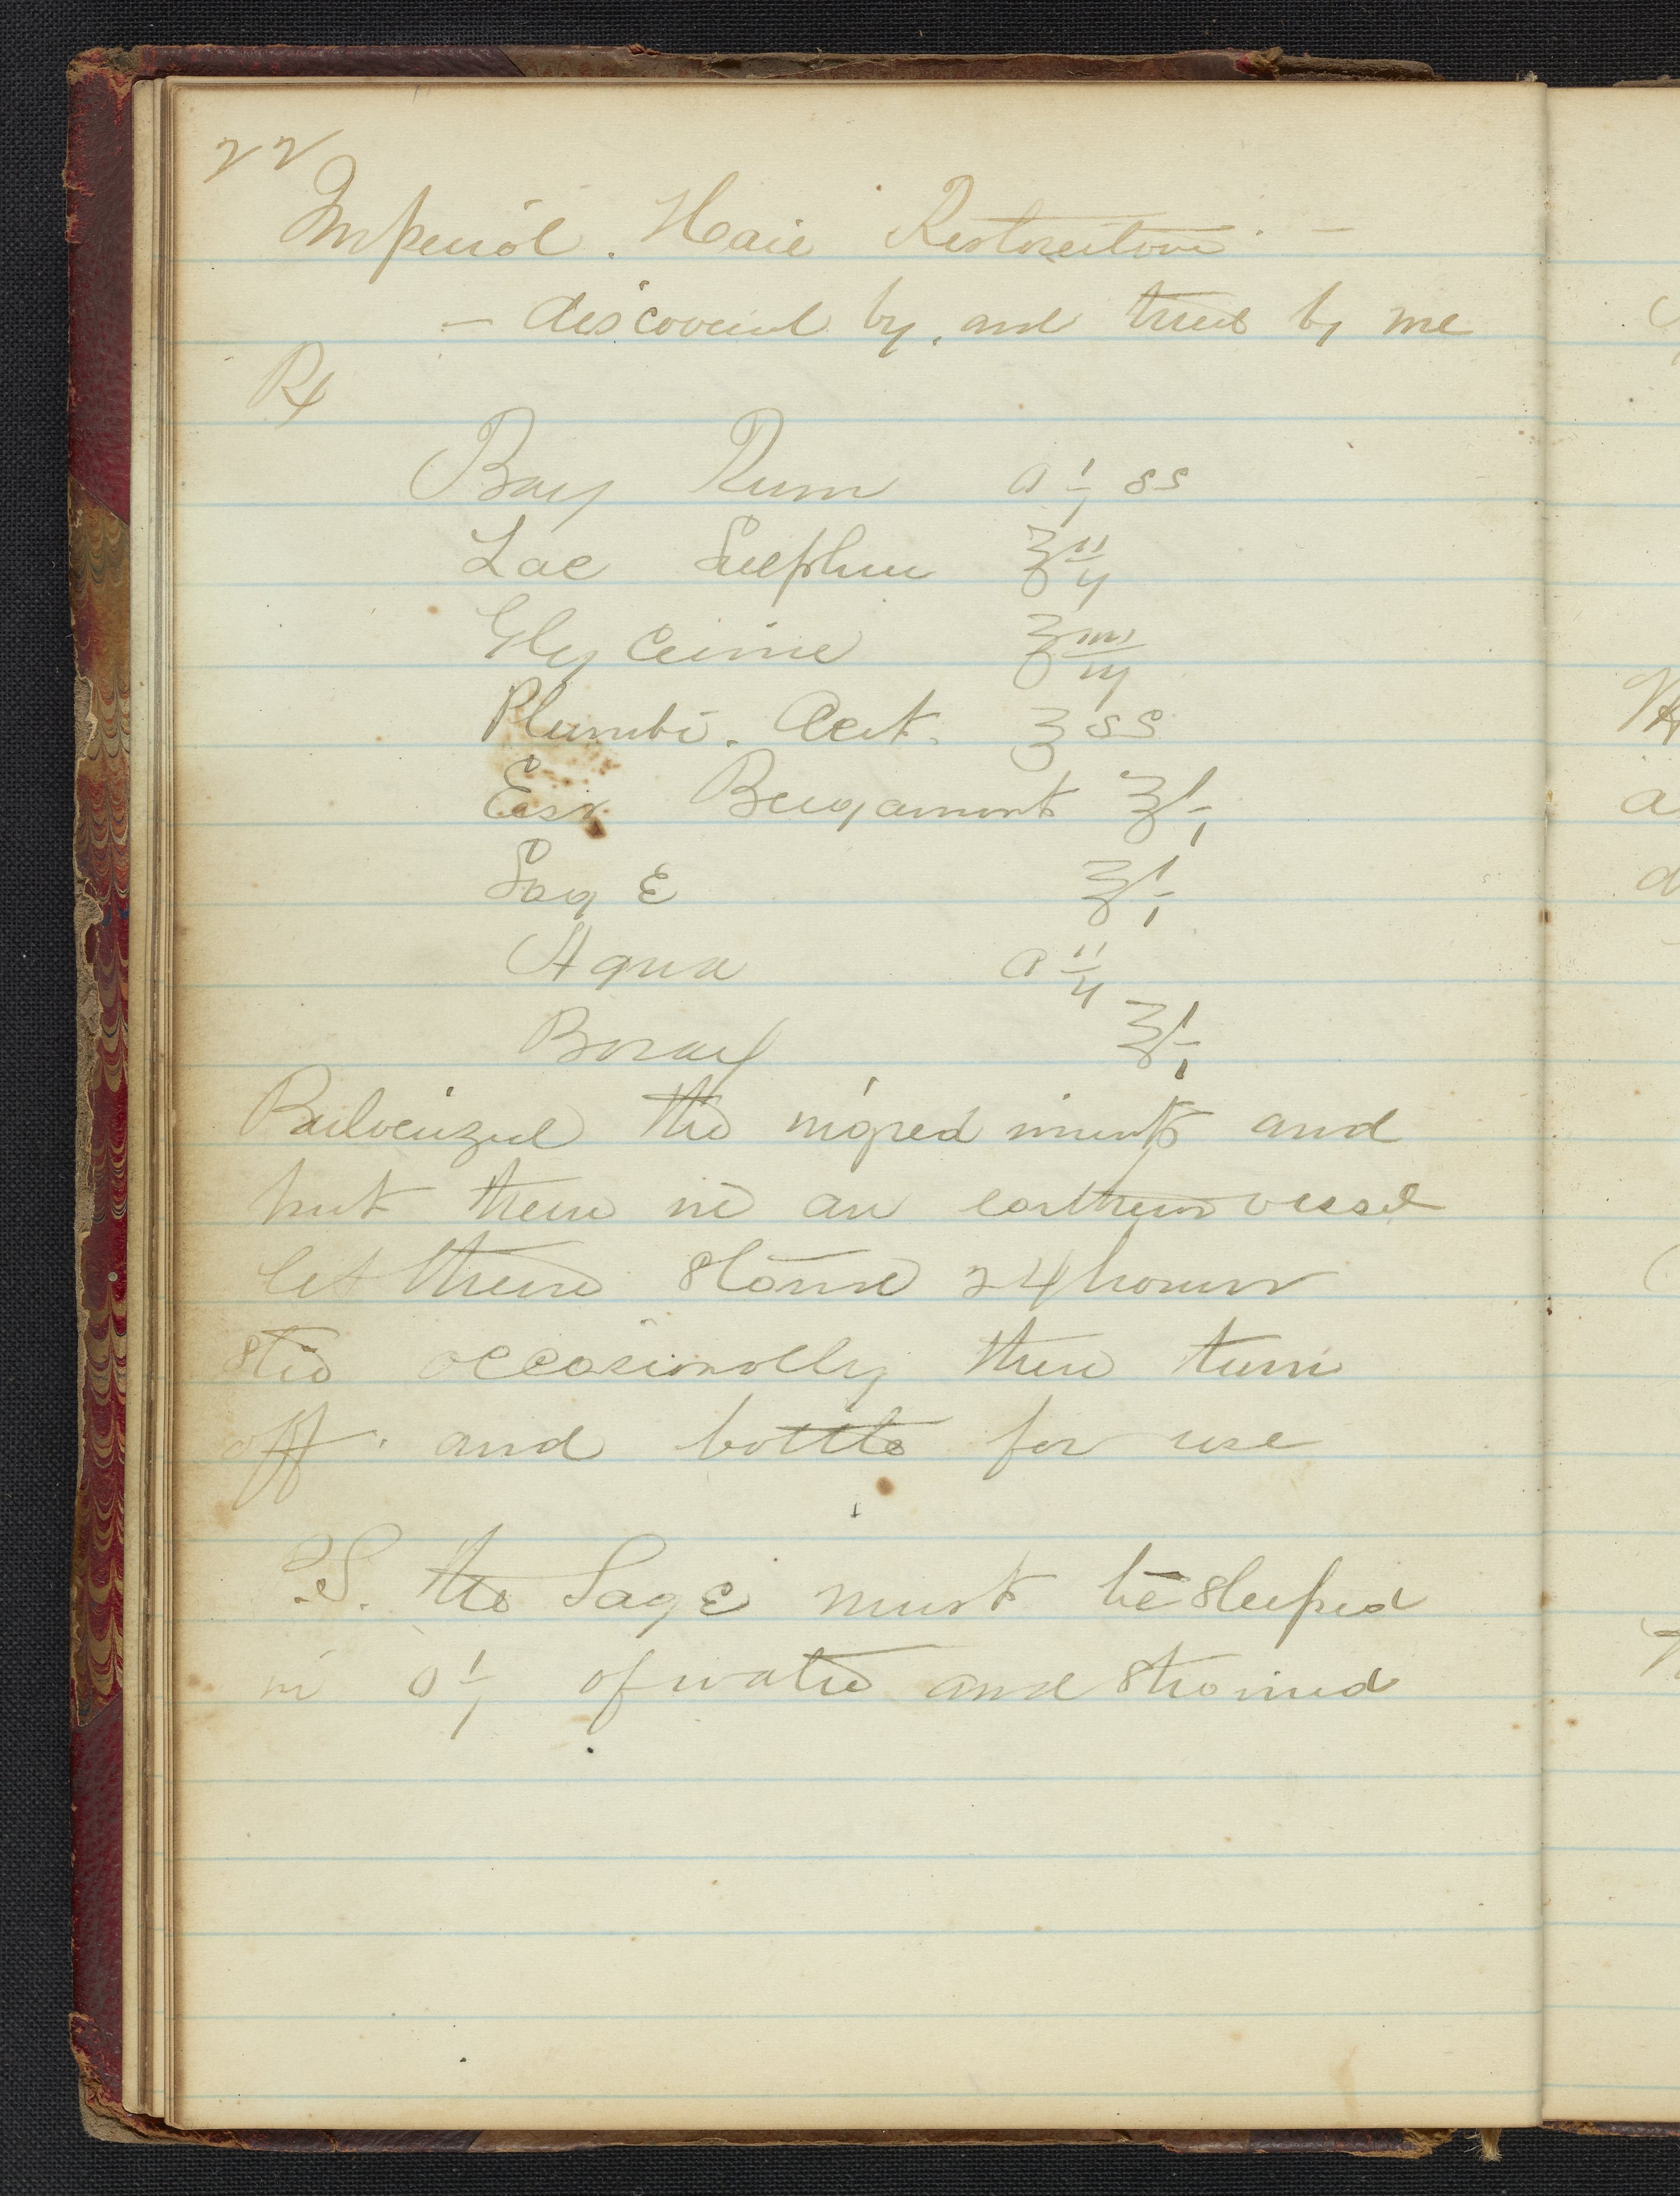 22
Imperial. Hair Restorative. —
— discovered by, and tried by me
℞
Bay Rum O ⅰ ss
Lac Sulphur ℥ ij
Glycerine ℥ iij
Plumbi. Acet. ℥ ss
Ess. Bergamont ℥ i
Sage ℥ i
Aqua O ij
Borax ℥ i
Pulverized the ingrediments and
put them in an earthern vessel
let them stand 24 hours
stir occasionally then turn
off. and bottle for use
P.S. the Sage must be steeped
in O i of water and strained